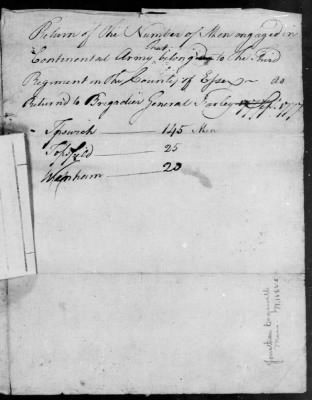 Return of the Number of Men engaged in
that
Continental Army belong to the Third
Regiment in the County of Essex as
Returned to Brigadier General Farley 1777
Ipswich 145 Men
Topsfeild 25
Wenham 20
Jonathan Cogswell